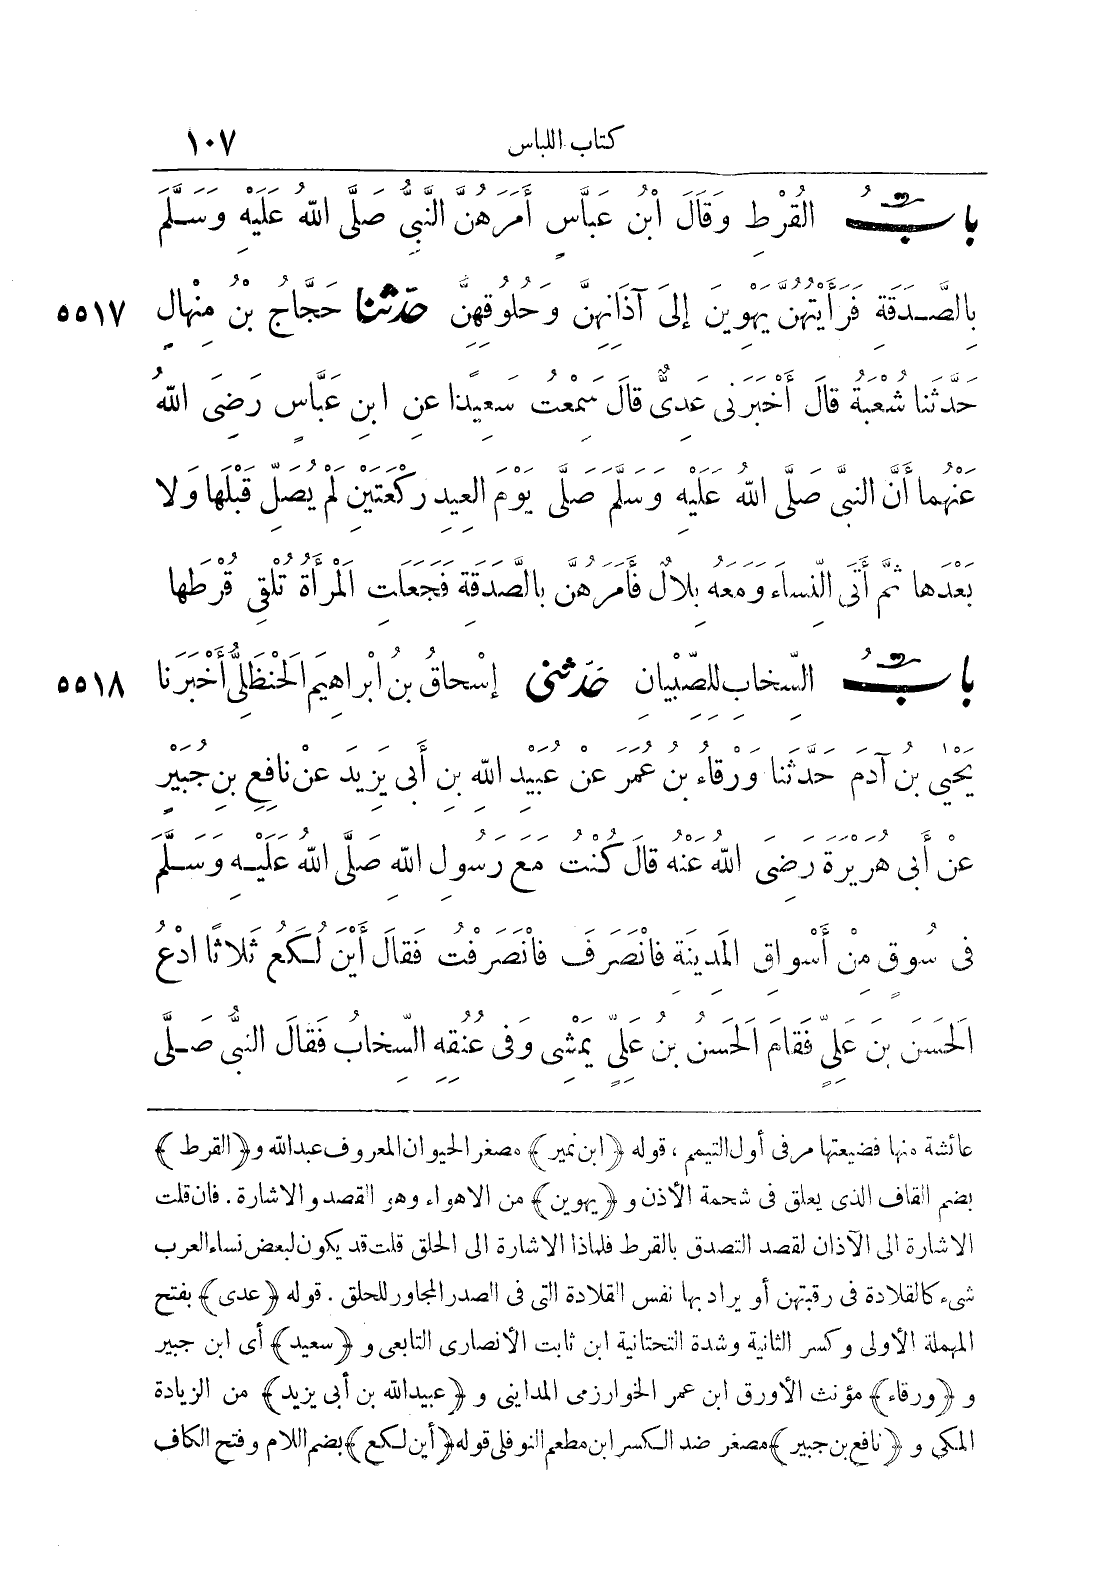 كتاب اللباس ١٠٧
بابُ القُرْطِ وَقَالَ ابْنُ عَبَّاسٍ أَمَرَهُنَّ النَّبِيُّ صَلَّى اللهُ عَلَيْهِ وَسَلَّمَ
بِالصَّدَقَةِ فَرَأَيْتُهُنَّ يَهْوِينَ إِلَى آذَانِهِنَّ وَحُلُوقِهِنَّ حَدَّثَنَا حَجَّاجُ بْنُ مِنْهَالٍ ٥٥١٧
حَدَّثَنَا شُعْبَةُ قَالَ أَخْبَرَنِي عَدِيٌّ قَالَ سَمِعْتُ سَعِيدًا عَنِ ابْنِ عَبَّاسٍ رَضِيَ اللهُ
عَنْهُمَا أَنَّ النَّبِيَّ صَلَّى اللهُ عَلَيْهِ وَسَلَّمَ صَلَّى يَوْمَ الْعِيدِ رَكْعَتَيْنِ لَمْ يُصَلِّ قَبْلَهَا وَلَا
بَعْدَهَا ثُمَّ أَتَى النِّسَاءَ وَمَعَهُ بِلَالٌ فَأَمَرَهُنَّ بِالصَّدَقَةِ فَجَعَلَتِ الْمَرْأَةُ تُلْقِي قُرْطَهَا
بابُ السِّخَابِ لِلصِّبْيَانِ حَدَّثَنِي إِسْحَاقُ بْنُ إِبْرَاهِيمَ الْحَنْظَلِيُّ أَخْبَرَنَا ٥٥١٨
يَحْيَى بْنُ آدَمَ حَدَّثَنَا وَرْقَاءُ بْنُ عُمَرَ عَنْ عُبَيْدِ اللهِ بْنِ أَبِي يَزِيدَ عَنْ نَافِعِ بْنِ جُبَيْرٍ
عَنْ أَبِي هُرَيْرَةَ رَضِيَ اللهُ عَنْهُ قَالَ كُنْتُ مَعَ رَسُولِ اللهِ صَلَّى اللهُ عَلَيْهِ وَسَلَّمَ
فِي سُوقٍ مِنْ أَسْوَاقِ الْمَدِينَةِ فَانْصَرَفَ فَانْصَرَفْتُ فَقَالَ أَيْنَ لُكَعُ ثَلَاثًا ادْعُ
الْحَسَنَ بْنَ عَلِيٍّ فَقَامَ الْحَسَنُ بْنُ عَلِيٍّ يَمْشِي وَفِي عُنُقِهِ السِّخَابُ فَقَالَ النَّبِيُّ صَلَّى
عائشة منها فضيعتها مر فى أول التيمم ، قوله ﴿ابن نمير﴾ مصغر الحيوان المعروف عبدالله و﴿القرط﴾
بضم القاف الذى يعلق فى شحمة الأذن و ﴿يهوين﴾ من الاهواء وهو القصد والاشارة . فان قلت
الاشارة الى الآذان لقصد التصدق بالقرط فلماذا الاشارة الى الحلق قلت قد يكون لبعض نساء العرب
شىء كالقلادة فى رقبتهن أو يراد بها نفس القلادة التى فى الصدر المجاور للحلق . قوله ﴿عدى﴾ بفتح
المهملة الأولى وكسر الثانية وشدة التحتانية ابن ثابت الأنصارى التابعى و ﴿سعيد﴾ أى ابن جبير
و ﴿ورقاء﴾ مؤنث الأورق ابن عمر الخوارزمى المدايني و ﴿عبيدالله بن أبى يزيد﴾ من الزيادة
المكى و ﴿نافع بن جبير﴾ مصغر ضد الكسر ابن مطعم النوفلى قوله ﴿أين لكع﴾ بضم اللام وفتح الكاف